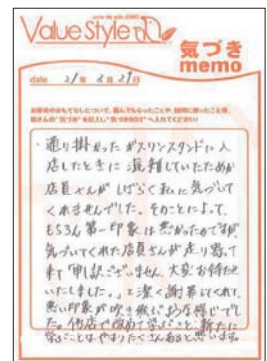 Value Style
気づき
memo
date 21年 8月29日
・通り掛かったガスリンスタンドに入
店したときに混雑していたためか
店員さんがしばらく私に気づいて
くれませんでした。そのことによって、
もちろん第一印象は悪かったのですが
気づいてくれた店員さんが走り寄って
来て「申し訳ございません、大変お待たせ
いたしました。」と潔く謝罪してくれて、
悪い印象が吹き飛ぶような感じでし
た。他店で改めて学ぶこと、新たに
学ぶことはやはりたくさんあると思います。